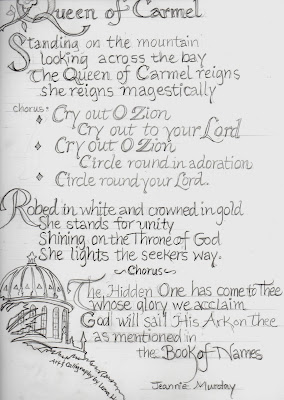 Queen of Carmel
Standing on the mountain
looking across the bay
The Queen of Carmel reigns
she reigns magestically
chorus:
Cry out O Zion
Cry out to your Lord
Cry out O Zion
Circle round in adoration
Circle round your Lord.
Robed in white and crowned in gold
She stands for unity
Shining on the Throne of God
She lights the seekers way.
~Chorus~
The Hidden One has come to Thee
whose glory we acclaim
God will sail His Ark on thee
as mentioned in
the Book of Names
Art & Calligraphy by
Jeannie Murday